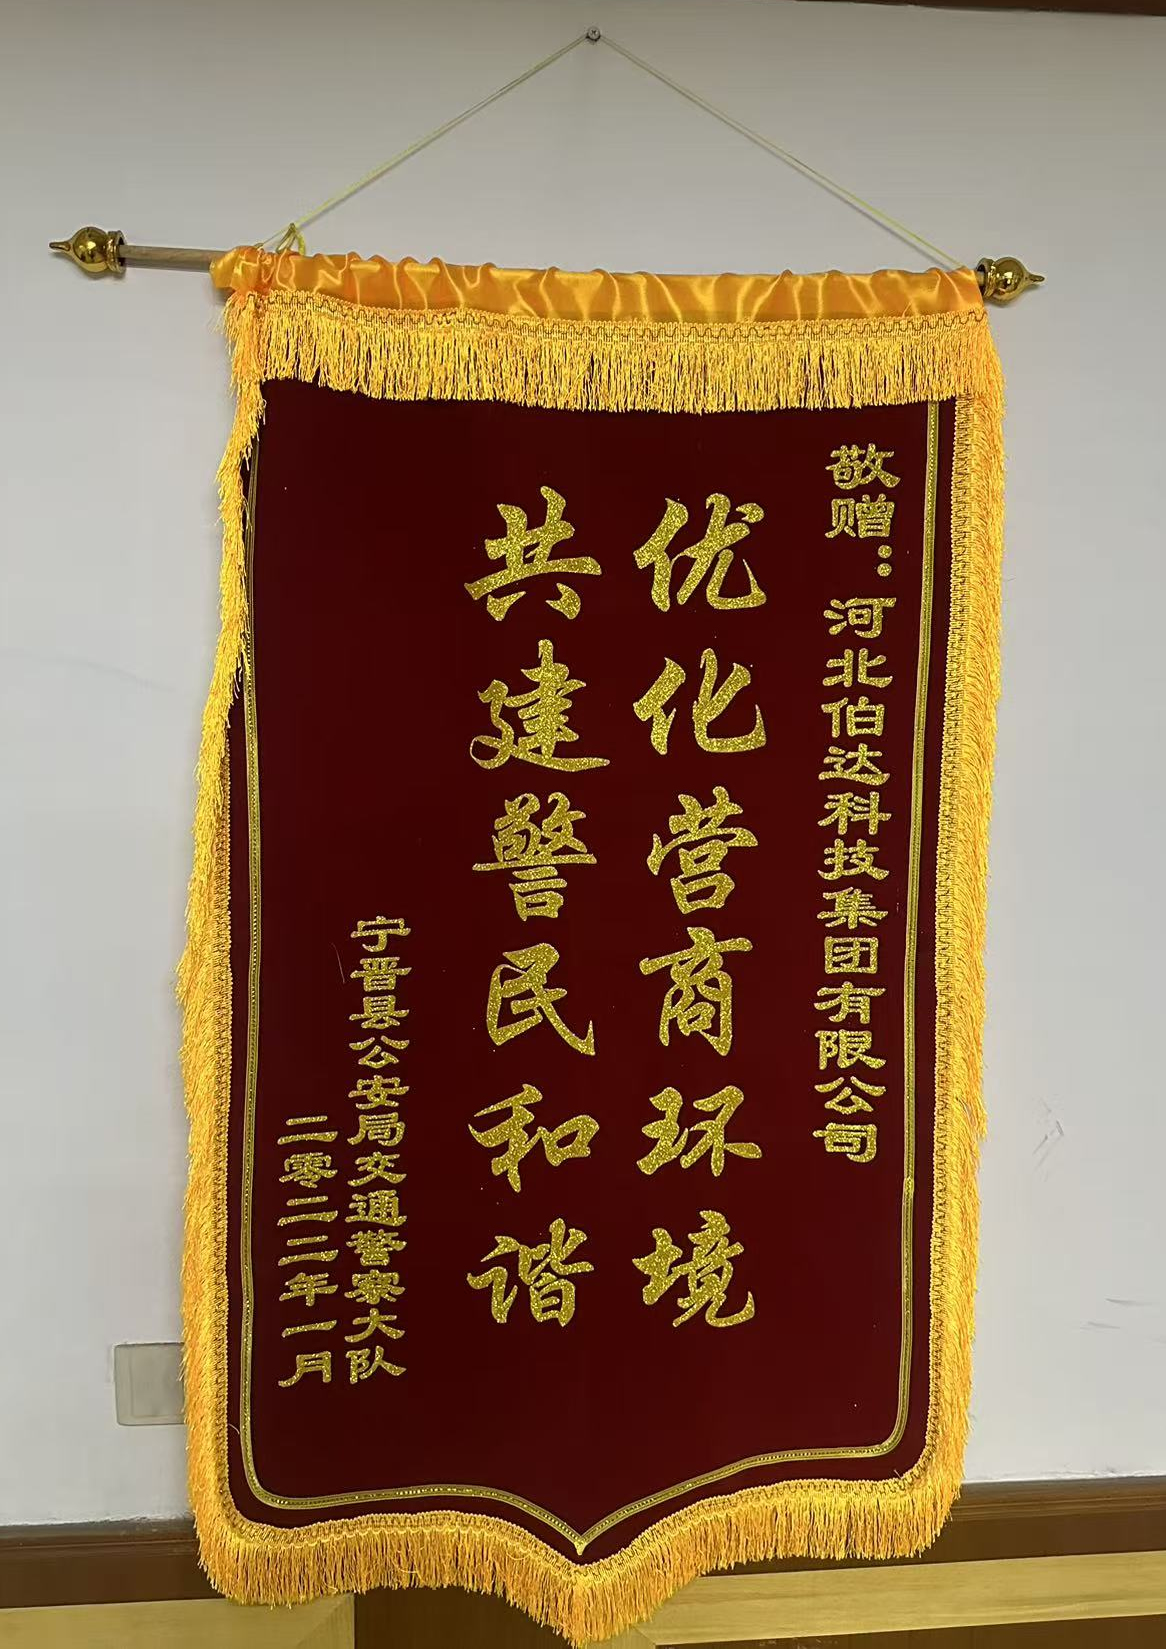 敬赠：河北伯达科技集团有限公司
优化营商环境
共建警民和谐
宁晋县公安局交通警察大队
二零二二年一月